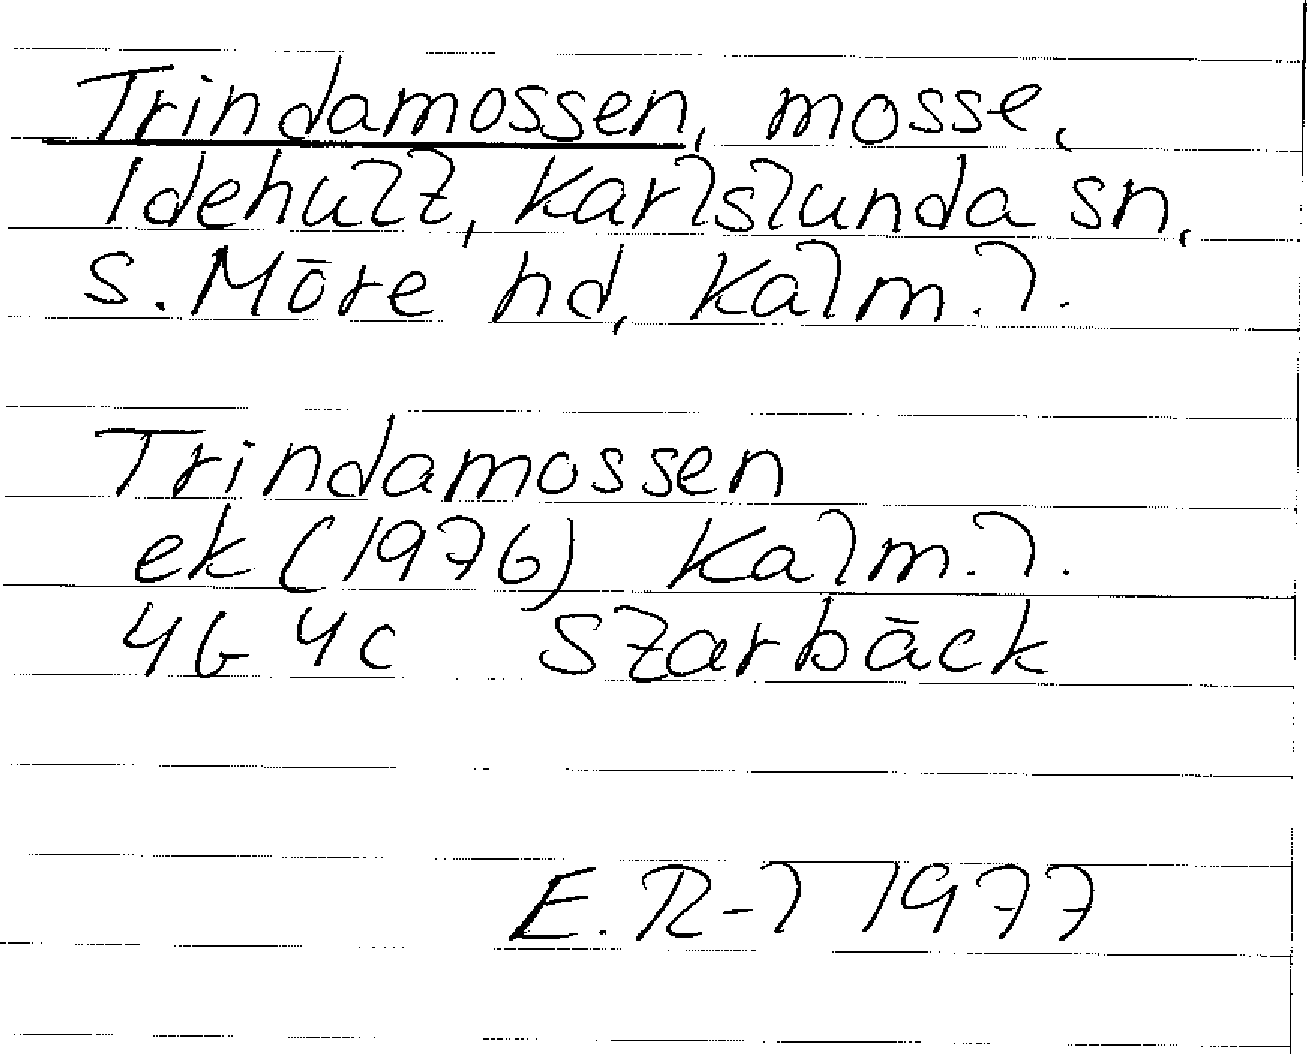 Trindamossen, mosse,
Idehult, Karlslunda sn,
S. Möre hd, Kalm. l.
Trindamossen
ek (1976) Kalm. l.
4G 4c Starbäck
E. R-l 1977